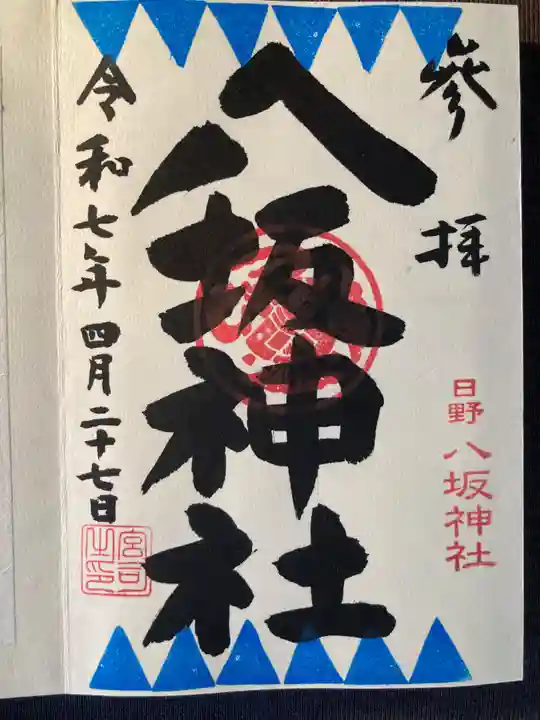 参拝
日野 八坂神社
八坂神社
令和七年四月二十七日
宮司之印